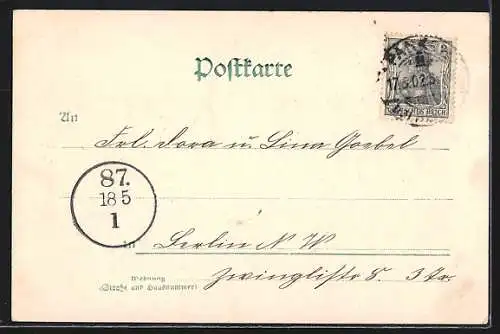 Postkarte
17.5.02.5
REICH
An
Frl. Dora u. Lina Goebel
87.
18 5
1
in
Berlin N W
Wohnung
(Straße und Hausnummer)
Zwinglistr 8. 3 Tr.